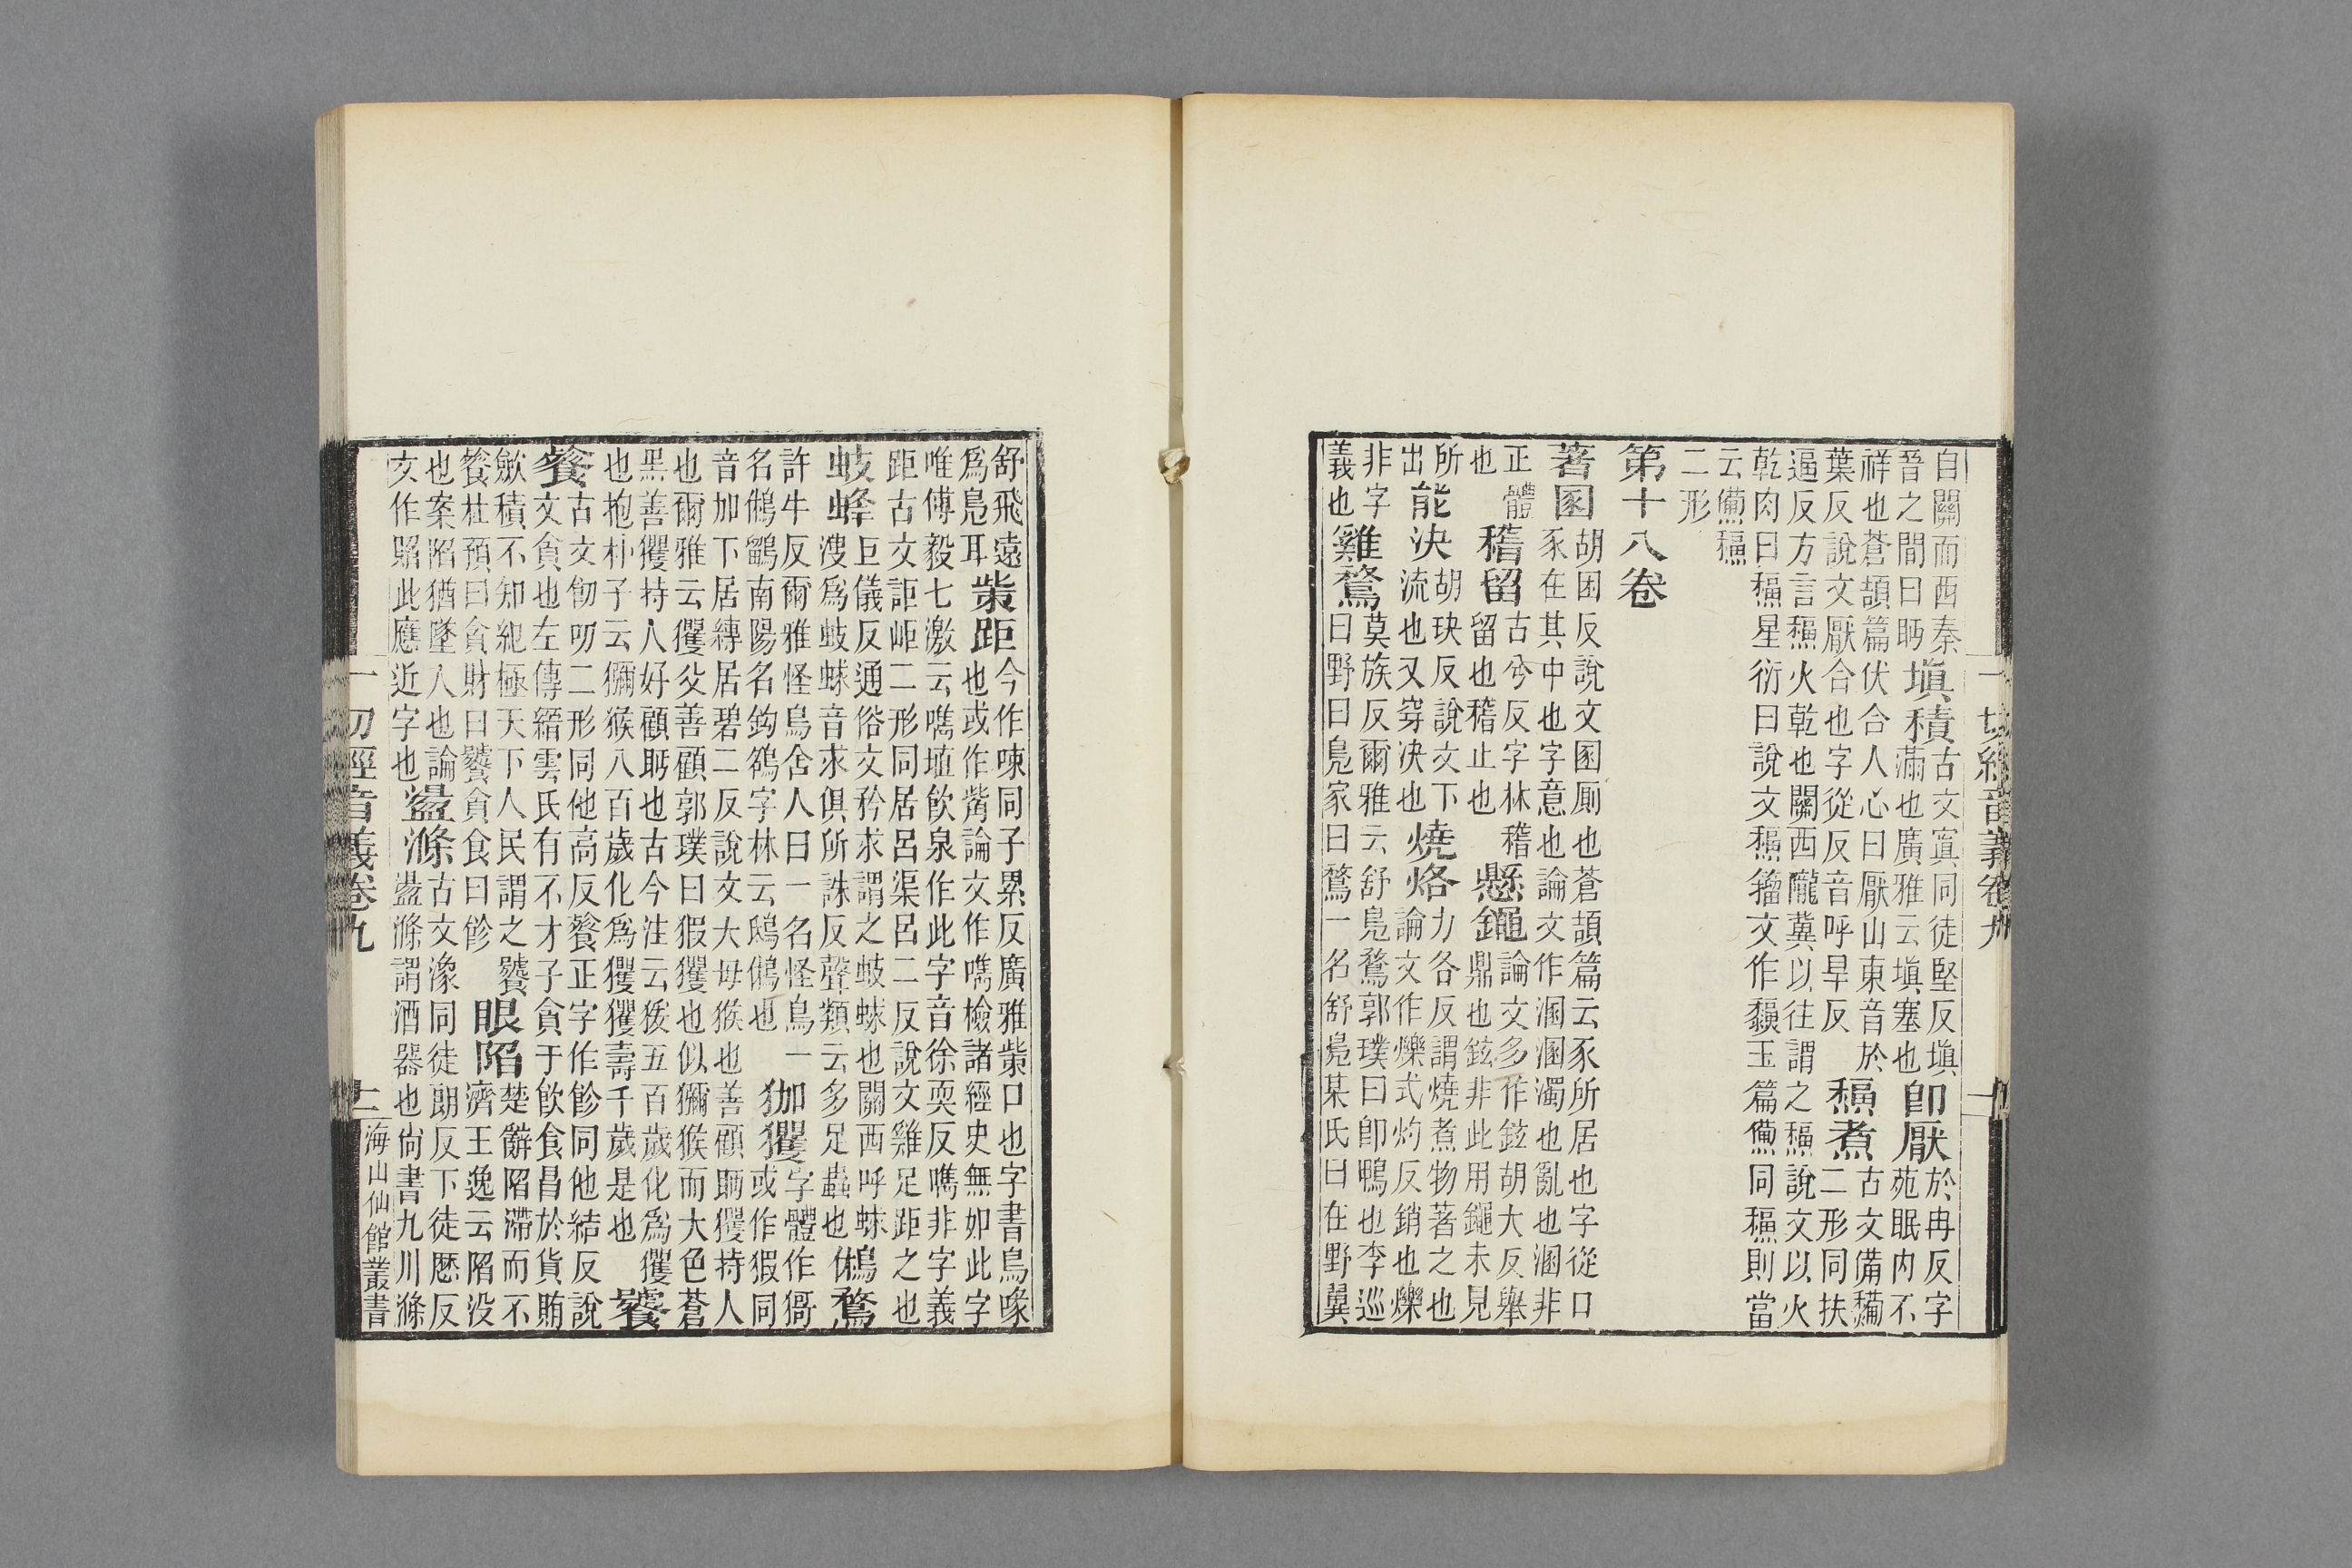 自關而西秦
晉之間曰眄
填積
古文窴同徒堅反填
滿也廣雅云填塞也
即厭
於冉反字
苑眠内不
祥也蒼頡篇伏合人心曰厭山東音於
葉反說文厭合也字從反音呼旱反
煮
古文
二形同扶
逼反方言火乾也關西隴冀以往謂之說文以火
乾肉曰星衍曰說文籀文作玉篇同則當
云
二形
第十八卷
著圂
胡困反說文圂厠也蒼頡篇云豕所居也字從口
豕在其中也字意也論文作溷溷濁也亂也溷非
正體
也
稽留
古兮反字林稽
留也稽止也
懸
論文多作鉉胡大反舉
鼎也鉉非此用未見
所
出
能決
胡玦反說文下
流也又穿決也
燒烙
力各反謂燒煮物著之也
論文作爍式灼反銷也爍
非字
義也
雞鶩
莫族反爾雅云舒鳧鶩郭璞曰卽鴨也李巡
曰野曰鳧家曰鶩一名舒鳧某氏曰在野翼
一切經音義卷九
舒飛遠
爲鳧耳
㭰距
今作㖩同子累反廣雅㭰口也字書鳥喙
也或作觜論文作㗻檢諸經史無如此字
唯傅毅七激云㗻埴飲泉作此字音徐耎反㗻非字義
距古文詎岠二形同居呂渠呂二反說文雞足距之也
蚑蜂
巨儀反通俗文矜求謂之蚑蛷也關西呼蛷
溲爲蚑蛷音求俱所誅反聲類云多足蟲也
鵂鶩
許牛反爾雅怪鳥舍人曰一名怪鳥一
名鵂鶹南陽名鉤鵅字林云鴟鵂也
㹢玃
字體作
或作猳同
音加下居縛居碧二反說文大母猴也善顧眄玃持人
也爾雅云玃父善顧郭璞曰猳玃也似獼猴而大色蒼
黑善玃持人好顧眄也古今注云猨五百歲化爲玃
也抱朴子云獼猴八百歲化爲玃玃壽千歲是也
饕
餮
古文飻叨二形同他高反餮正字作飻同他結反說
文貪也左傳縉雲氏有不才子貪于飲食昌於貨賄
斂積不知紀極天下人民謂之饕
餮杜預曰貪財曰饕貪食曰飻
眼陷
楚辭陷滯而不
濟王逸云陷没
也案陷猶墜入也論
文作此應近字也
盪滌
古文潒同徒朗反下徒厯反
盪滌謂酒器也尙書九川滌
一切經音義卷九
海山仙館叢書